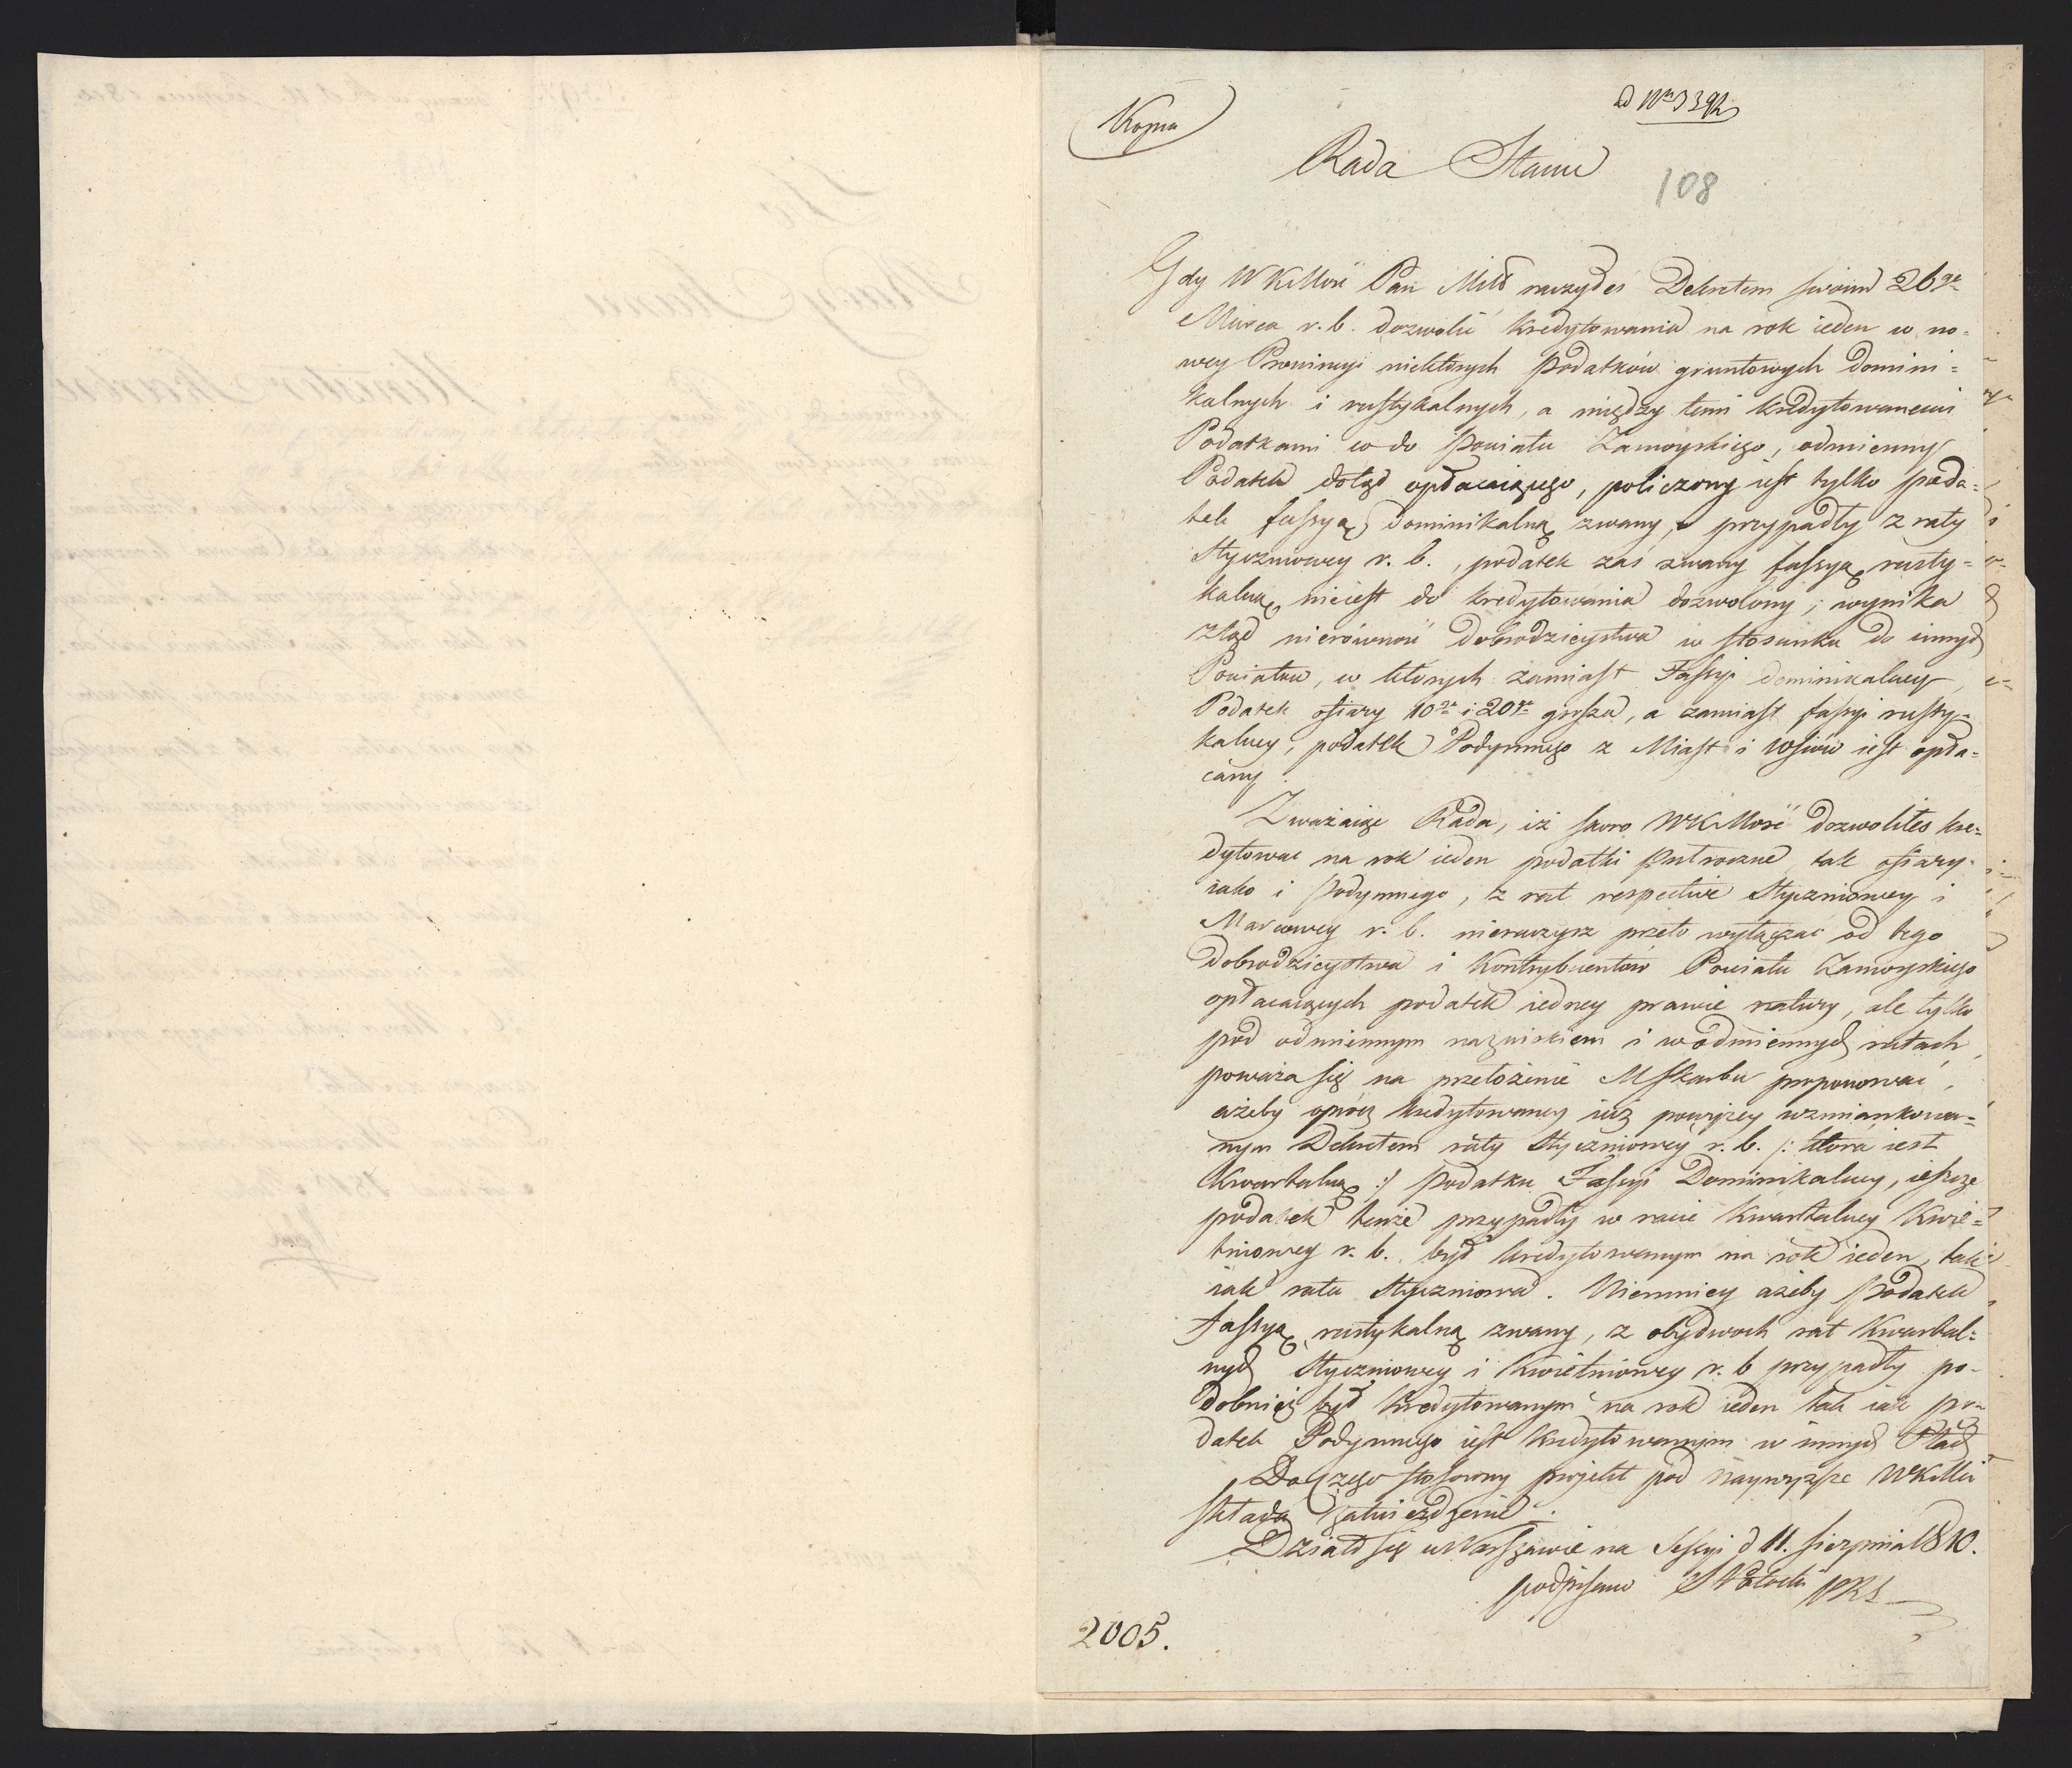 Kopia
ad Nrm 3392
Rada Stanu
108
Gdy WKMość Pan Miłł raczyłeś Dekretem swoim 26go
Marca r. b. dozwolić kredytowania na rok ieden w no-
wey Prowincyi niektórych Podatków gruntowych domini-
kalnych i rustykalnych, a między temi kredytowanemi
Podatkami co do Powiatu Zamoyskiego, odmienny
Podatek dotąd opłacaiącego, policzony iest tylko poda-
tek fassyą dominikalną zwany, przypadły z raty
Styczniowey r. b., podatek zaś zwany fassyą rusty-
kalną nieiest do kredytowania dozwolony; wynika
ztąd nierówność dobrodzieystwa w stosunku do innych
Powiatów, w których zamiast Fassyi dominikalney,
Podatek ofiary 10go i 20go grosza, a zamiast fassyi rusty-
kalney, podatek Podymnego z Miast i Wsiów iest opła-
cany.
Zważaiąc Rada, iż skoro WKMość dozwoliłeś kre-
dytować na rok ieden podatki Półroczne tak ofiary
iako i Podymnego, z rat respective Styczniowey i
Marcowey r. b. nieraczysz przeto wyłączać od tego
dobrodzieystwa i Kontrybuentów Powiatu Zamoyskiego
opłacaiących podatek iedney prawie natury, ale tylko
pod odmiennym nazwiskiem i w odmiennych ratach,
poważa się na przełożenie MSkarbu proponować,
ażeby oprócz kredytowaney iuż powyżey wzmiankowa-
nym Dekretem raty Styczniowey r. b. /: która iest
Kwartalną :/ Podatku Fassyi Dominikalney, ieszcze
podatek tenże przypadły w racie Kwartalney Kwie-
tniowey r. b. był kredytowanym na rok ieden, tak
iak rata Styczniowa. Niemniey ażeby Podatek
Fassyą rustykalną zwany, z obydwóch rat Kwartal-
nych Styczniowey i Kwietniowey r. b przypadły po-
dobnież był kredytowanym na rok ieden tak iak po-
datek Podymnego iest kredytowanym w innych
Do czego stosowny projekt pod naywyższe WKMci
składa zatwierdzenie.
Działo się w Warszawie na Sessyi d 11. Sierpnia 1810.
podpisano S Potocki PRS
2005.